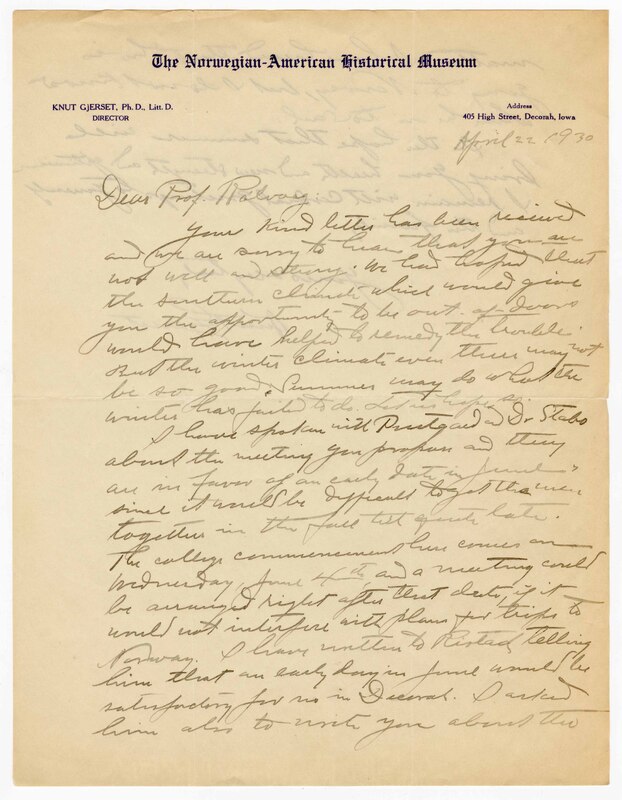 The Norwegian-American Historical Museum
KNUT GJERSET, Ph. D., Litt. D.
DIRECTOR
Address
405 High Street, Decorah, Iowa
April 22 1930
Dear Prof. Rolvag.
Your kind letter has been received
and we are sorry to hear that you are
not well and strong. We had hoped that
the southern climate which would give
you the opportunity to be out-of-doors
would have helped to remedy the trouble.
But the winter climate even there may not
be so good. Summer may do what the
winter has failed to do. Let us hope so.
I have spoken with Preus and Dr. Stabo
about the meeting you propose and they
are in favor of an early date in June
since it would be difficult to get the men
together in the fall till quite late.
The college commencement here comes on
Wednesday, June 4th, and a meeting could
be arranged right after that date, if it
would not interfere with plans for trips to
Norway. I have written to Ristad telling
him that an early day in June would be
satisfactory for us in Decorah. I asked
him also to write you about the